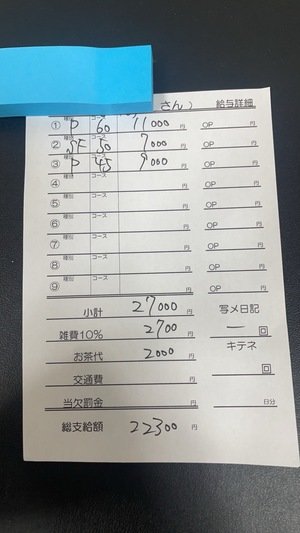 さん） 給与詳細
① 種別 P コース 60 11000 円 OP 円
② 種別 SF コース 50 7000 円 OP 円
③ 種別 P コース 45 9000 円 OP 円
④ 種別 コース 円 OP 円
⑤ 種別 コース 円 OP 円
⑥ 種別 コース 円 OP 円
⑦ 種別 コース 円 OP 円
⑧ 種別 コース 円 OP 円
⑨ 種別 コース 円 OP 円
小計 27000 円 写メ日記
雑費10% 2700 円 ー 回
お茶代 2000 円 キテネ
交通費 円 回
当欠罰金 円 日分
総支給額 22300 円